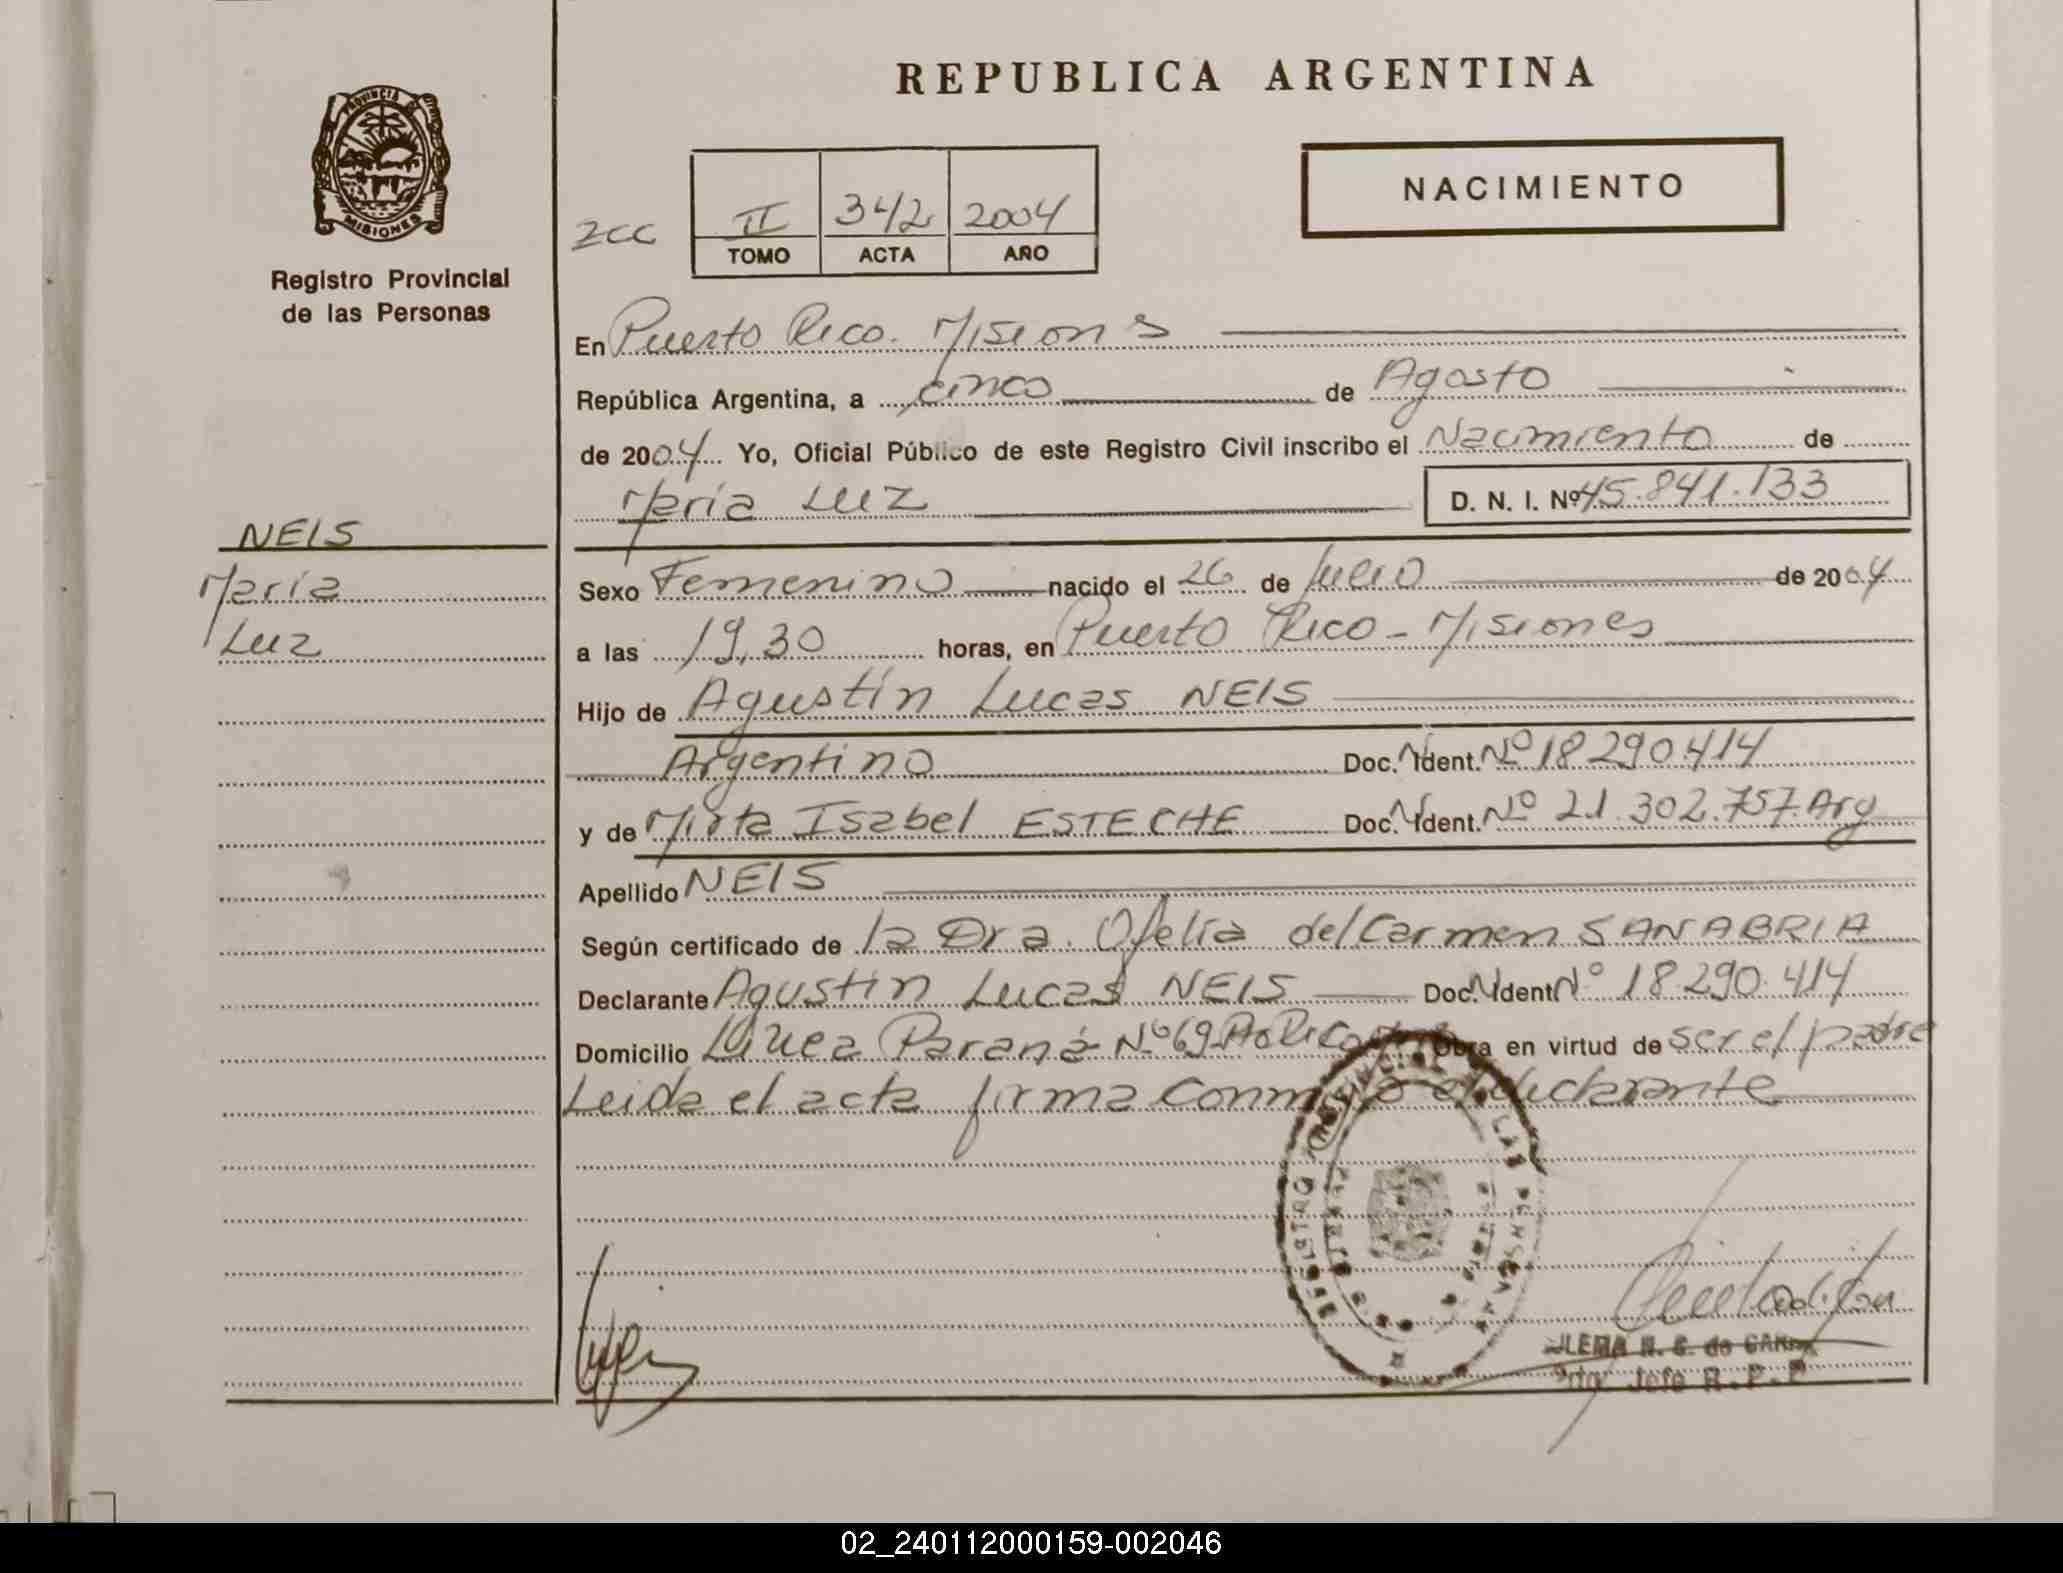 REPUBLICA ARGENTINA
PROVINCIA DE
MISIONES
Registro Provincial
de las Personas
NACIMIENTO
2cc
II 342 2004
TOMO ACTA AÑO
En Puerto Rico. Misiones
República Argentina, a cinco de Agosto
de 2004 Yo, Oficial Público de este Registro Civil inscribo el Nacimiento de
María Luz D. N. I. Nº 45.841.133
NEIS
María
Luz
Sexo Femenino nacido el 26 de Julio de 2004
a las 19,30 horas, en Puerto Rico - Misiones
Hijo de Agustín Lucas NEIS
Argentino Doc. Ident. Nº 18.290.414
y de Mirta Isabel ESTECHE Doc. Ident. Nº 21.302.757. Arg
Apellido NEIS
Según certificado de la Dra. Ofelia del Carmen SANABRIA
Declarante Agustín Lucas NEIS Doc. Ident Nº 18.290.414
Domicilio Línea Paraná Nº 69 Pto Rico Obra en virtud de ser el padre
Leida el acta firma conmigo el declarante
REGISTRO PROVINCIAL DE LAS PERSONAS
Jefe R.P.P
02_240112000159-002046